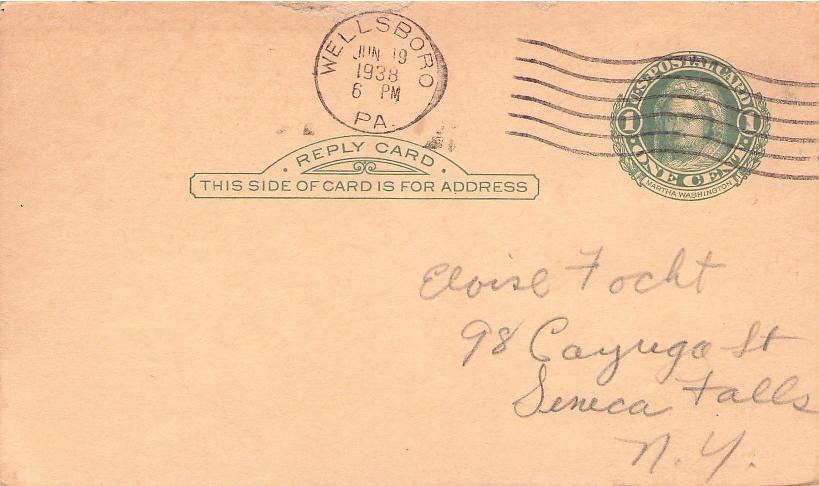 WELLSBORO
JUN 19
1938
6 PM
PA.
U.S. POSTAL CARD
1 1
ONE CENT
MARTHA WASHINGTON
REPLY CARD
THIS SIDE OF CARD IS FOR ADDRESS
Eloise Focht
98 Cayuga St
Seneca Falls
N.Y.